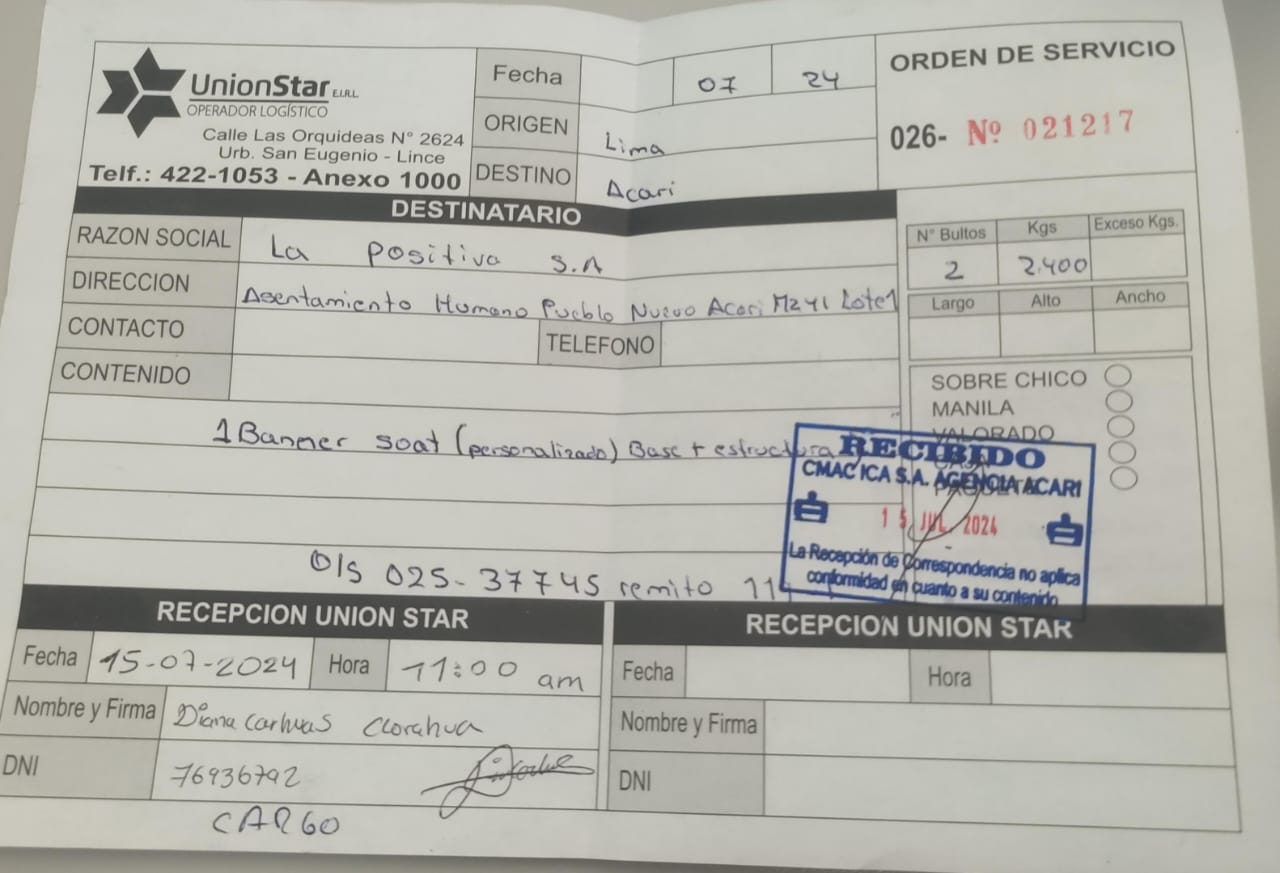 UnionStar E.I.R.L
OPERADOR LOGÍSTICO
Calle Las Orquideas N° 2624
Urb. San Eugenio - Lince
Telf.: 422-1053 - Anexo 1000
Fecha 07 24
ORIGEN Lima
DESTINO Acari
ORDEN DE SERVICIO
026- Nº 021217
DESTINATARIO
RAZON SOCIAL La positiva S.A
DIRECCION Asentamiento Humano Pueblo Nuevo Acari Mz41 Lote1
CONTACTO TELEFONO
CONTENIDO
N° Bultos Kgs Exceso Kgs.
2 2.400
Largo Alto Ancho
SOBRE CHICO
MANILA
VALORADO
1 Banner soat (personalizado) Base + estructura
RECIBIDO
CMAC ICA S.A. AGENCIA ACARI
15 JUL. 2024
La Recepción de Correspondencia no aplica
conformidad en cuanto a su contenido
O/S 025-37745 remito
RECEPCION UNION STAR
Fecha 15-07-2024 Hora 11:00 am
Nombre y Firma Diana Carhuas
DNI 76936792
CARGO
RECEPCION UNION STAR
Fecha Hora
Nombre y Firma
DNI